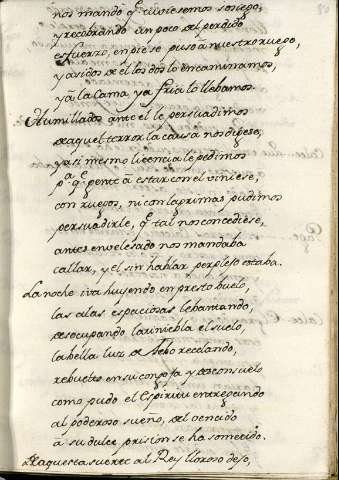 nos mando q̃ tuviesemos sosiego,
y recobrando un poco del perdido
esfuerzo, en pie se puso à nuestro ruego,
y asidos de el los dos lo encaminamos,
y à la cama ya fria lo llebamos.
Humillados ante el le persuadimos
de aquel terror la causa nos dijese,
y asi mesmo licencia le pedimos
pᵃ qᵉ gente à estar con el viniese,
con ruegos, ni con lagrimas pudimos
persuadirle, q̃ tal nos concediese,
antes envelesado nos mandaba
callar, y el sin hablar perplejo estaba.
La noche iva huyendo en presto buelo,
las alas espaciosas lebantando,
desocupando la niebla el suelo,
la bella luz de Febo recelando,
rebuelto en su congoja y desconsuelo
como pudo el Espiritu entregando
al poderoso sueño, del vencido
à su dulce prision se ha sometido.
De aquesta suerte al Rey lloroso dejo,